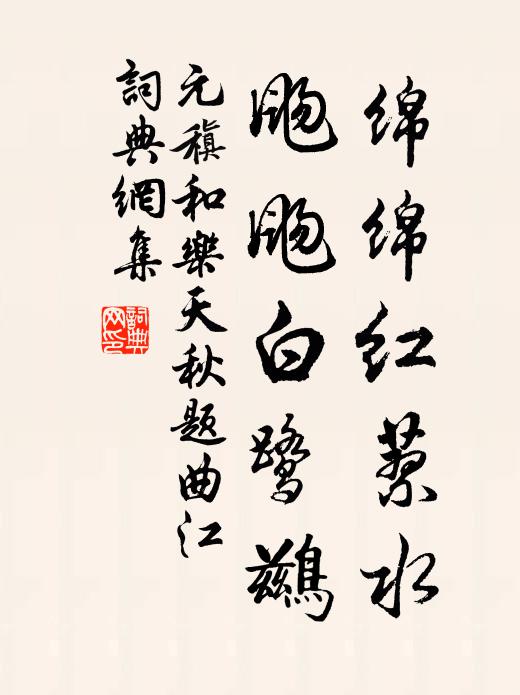 绵绵红蓼水
飏飏白鹭鶿
元稹和樂天秋题曲江
詞典網集
詞典网印